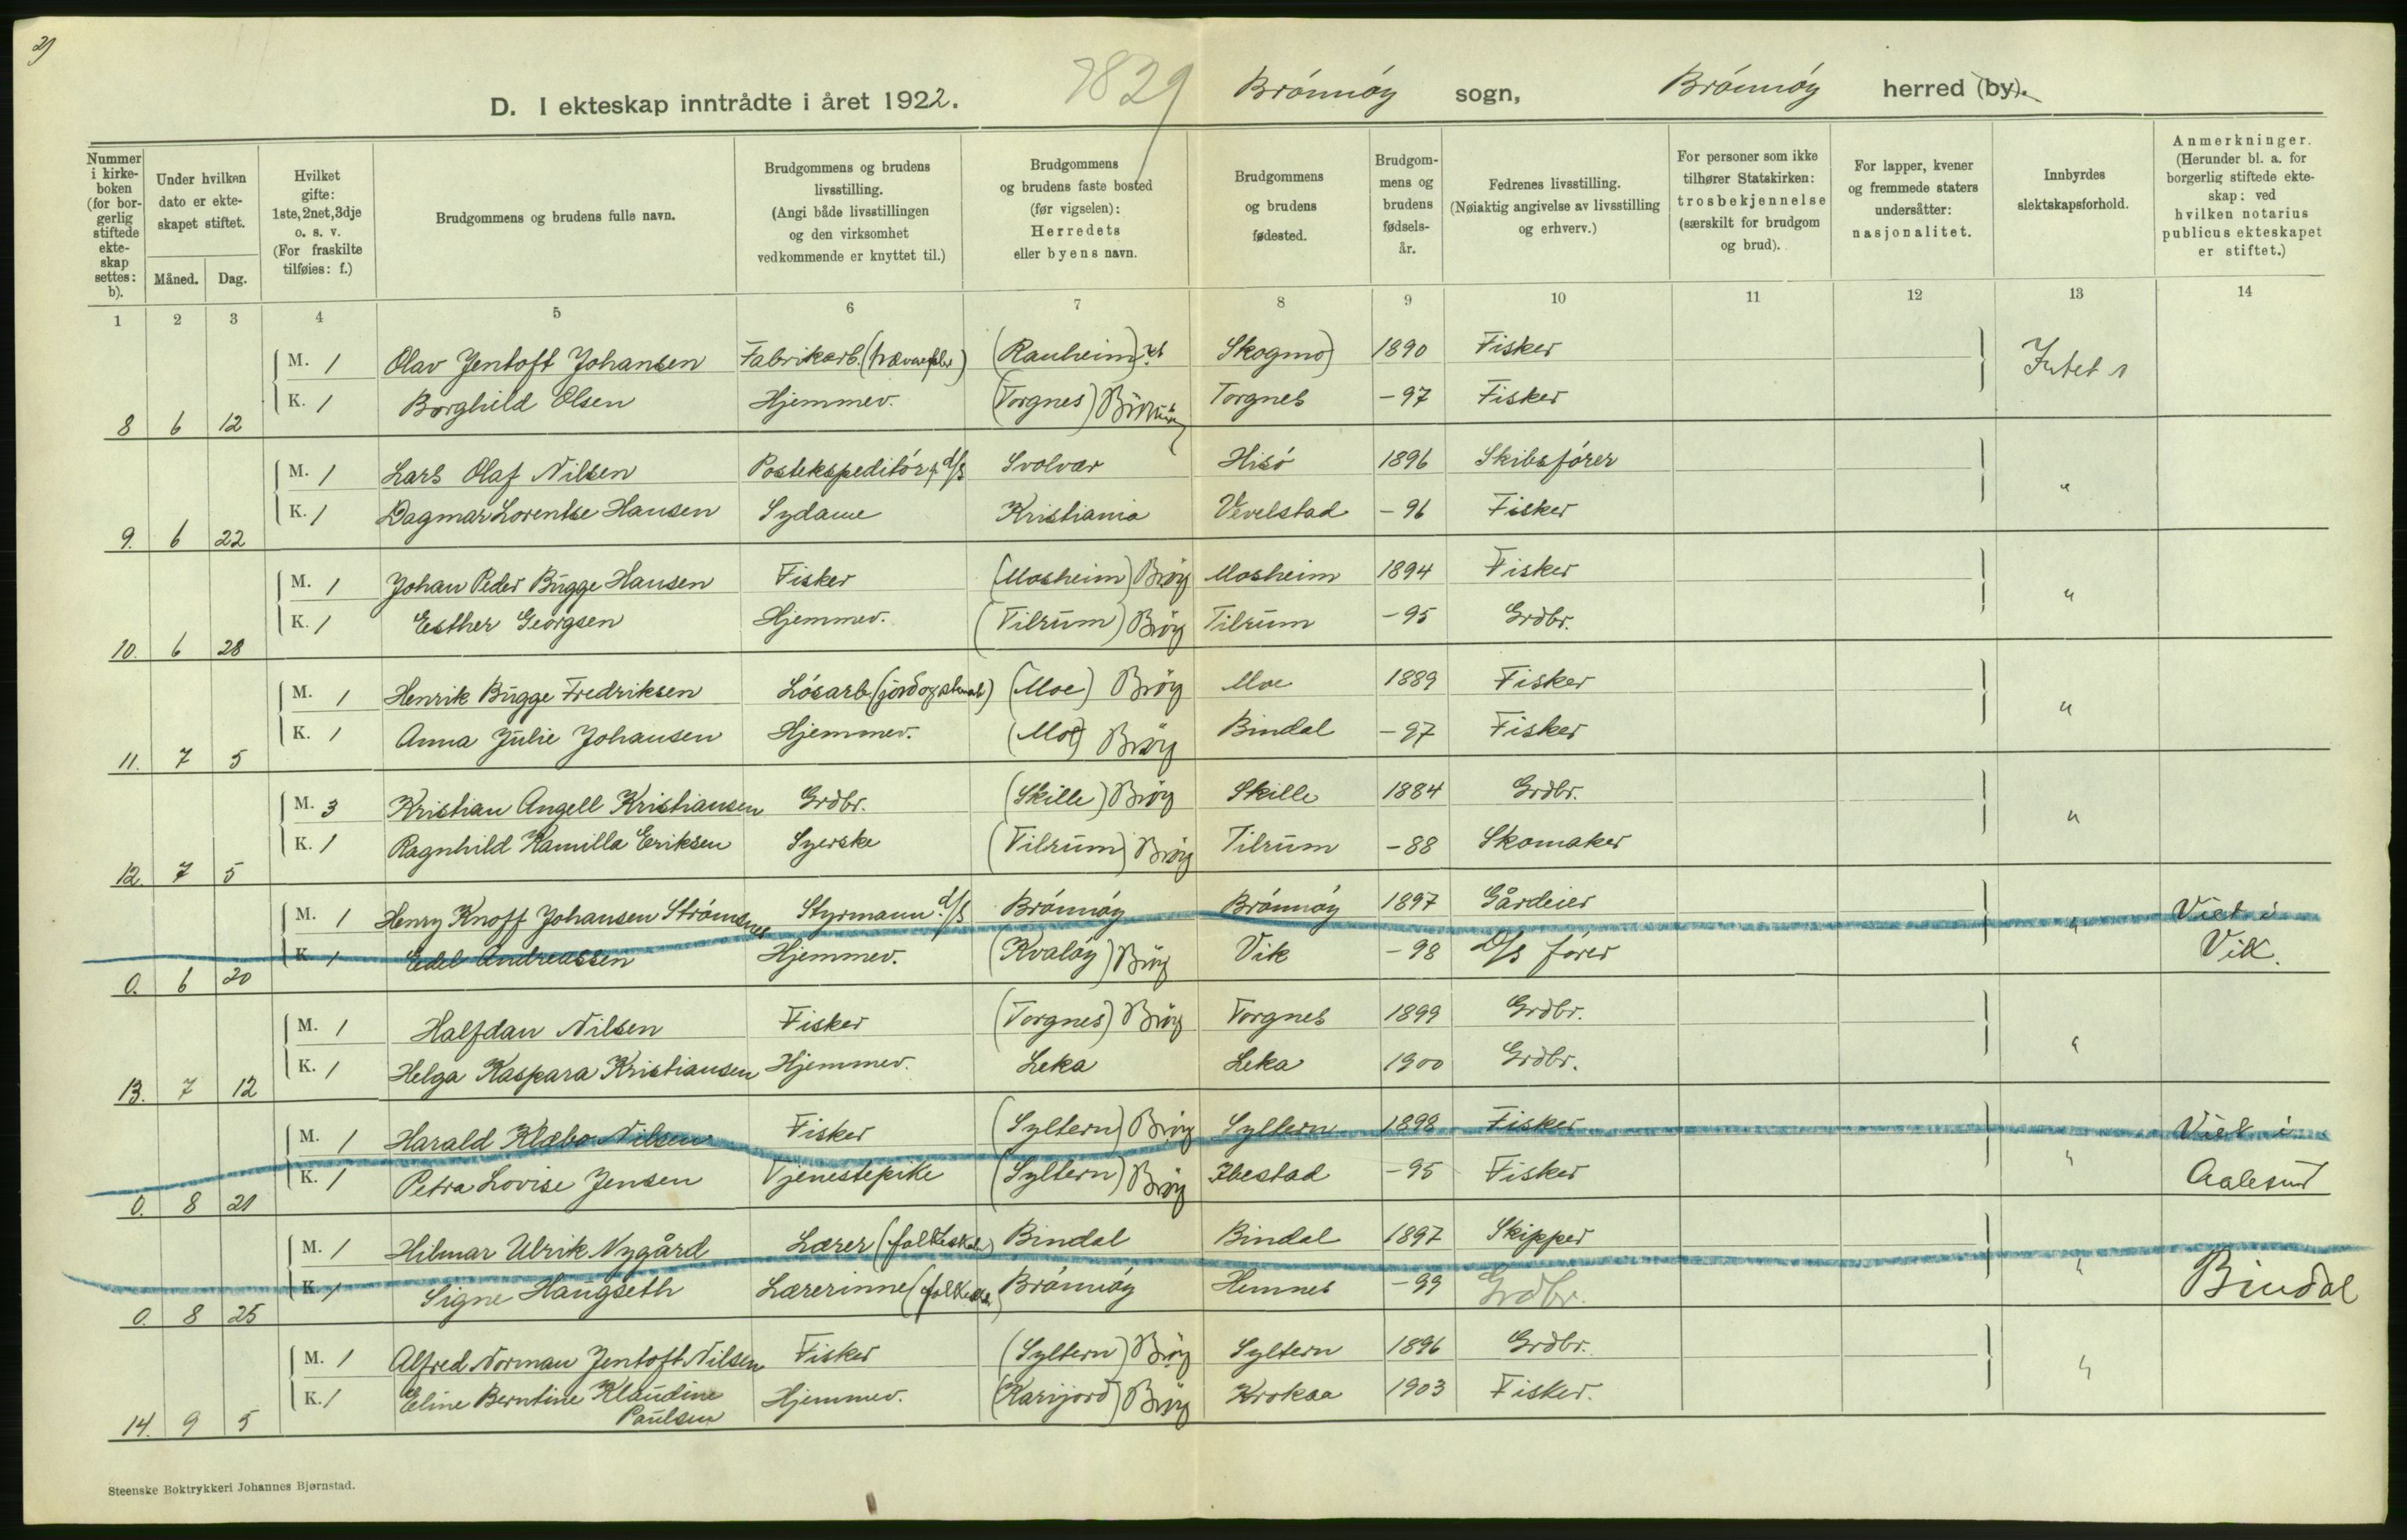 2)
D. I ekteskap inntrådte i året 1922.
7829
Brönnöy sogn, Brönnöy herred (by).
Nummer i kirkeboken (for borgerlig stiftede ekteskap settes: b).
Under hvilken dato er ekteskapet stiftet.
Måned. Dag.
Hvilket gifte: 1ste, 2net, 3dje o. s. v. (For fraskilte tilføies: f.)
Brudgommens og brudens fulle navn.
Brudgommens og brudens livsstilling. (Angi både livsstillingen og den virksomhet vedkommende er knyttet til.)
Brudgommens og brudens faste bosted (før vigselen): Herredets eller byens navn.
Brudgommens og brudens fødested.
Brudgommens og brudens fødselsår.
Fedrenes livsstilling. (Nøiaktig angivelse av livsstilling og erhverv.)
For personer som ikke tilhører Statskirken: trosbekjennelse (særskilt for brudgom og brud).
For lapper, kvener og fremmede staters undersåtter: nasjonalitet.
Innbyrdes slektskapsforhold.
Anmerkninger. (Herunder bl. a. for borgerlig stiftede ekteskap: ved hvilken notarius publicus ekteskapet er stiftet.)
1 2 3 4 5 6 7 8 9 10 11 12 13 14
M. 1 Olav Jentoft Johansen Fabrikarb. (Ranheim) Skogmo) 1890 Fisker Intet
K. 1 Borghild Olsen Hjemmev. (Torgnes) Torgnes -97 Fisker
8 6 12
M. 1 Lars Olaf Nilsen Postekspeditör, d/s Svolvær Hisö 1896 Skibsförer "
K. 1 Dagmar Lorentse Hansen Sydame Kristiania Vevelstad -96 Fisker
9. 6 22
M. 1 Johan Peder Bugge Hansen Fisker (Mosheim) Bröy Mosheim 1894 Fisker "
K. 1 Esther Georgsen Hjemmev. (Tilrum) Bröy Tilrum -95 Grdbr.
10. 6 28
M. 1 Henrik Bugge Fredriksen Lösarb. (Moe) Bröy Moe 1889 Fisker "
K. 1 Anna Julie Johansen Hjemmev. (Moe) Bröy Bindal -97 Fisker
11. 7 5
M. 3 Kristian Angell Kristiansen Grdbr. (Skille) Bröy Skille 1884 Grdbr. "
K. 1 Ragnhild Kamilla Eriksen Syerske (Tilrum) Bröy Tilrum -88 Skomaker
12. 7 5
M. 1 Henry Knoff Johansen Strömsnes Styrmann d/s Brönnöy Brönnöy 1897 Gårdeier " Viet i
K. 1 Edel Andreassen Hjemmev. (Kvalöy) Bröy Vik -98 D/s förer Vik.
0. 6 20
M. 1 Halfdan Nilsen Fisker (Torgnes) Bröy Torgnes 1899 Grdbr. "
K. 1 Helga Kaspara Kristiansen Hjemmev. Leka Leka 1900 Grdbr.
13. 7 12
M. 1 Harald Klæbo Nilsen Fisker (Syltern) Bröy Syltern 1898 Fisker " Viet i
K. 1 Petra Lovise Jensen Tjenestepike (Syltern) Bröy Ibestad -95 Fisker Aalesund
0. 8 21
M. 1 Hilmar Ulrik Nygård Lærer (folkeskole) Bindal Bindal 1897 Skipper "
K. 1 Signe Haugseth Lærerinne Brönnöy Hemnes -99 Grdbr. Bindal
0. 8 25
M. 1 Alfred Norman Jentoft Nilsen Fisker (Syltern) Bröy Syltern 1896 Grdbr. "
K. 1 Eline Berntine Klaudine Paulsen Hjemmev. (Karijord) Bröy Krokaa 1903 Fisker.
14. 9 5
Steenske Boktrykkeri Johannes Bjørnstad.